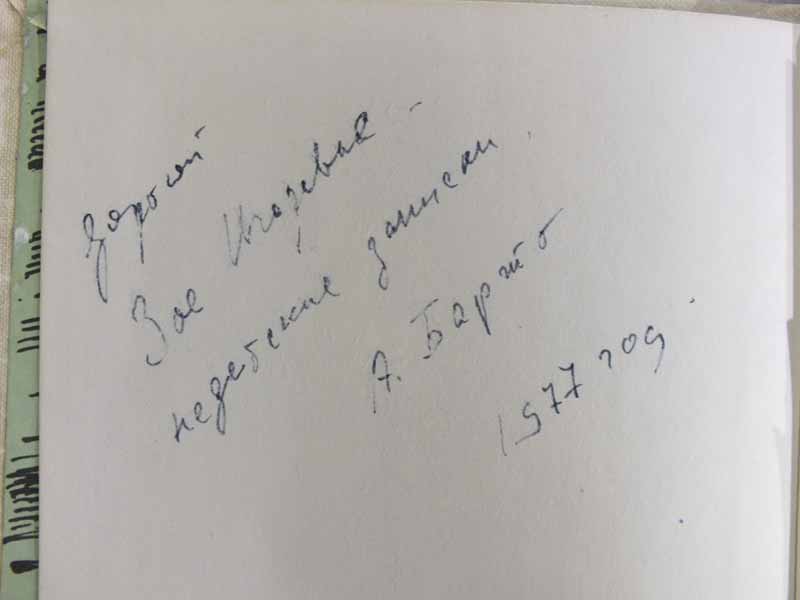 Дорогой
Зое Игоревне -
недетские записки.
А. Барто
1977 год.